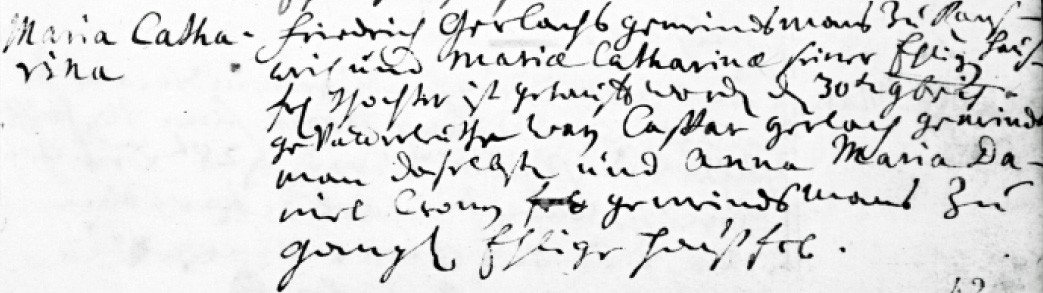 Maria Catha-
rina
Friedrich Gerlachs gemeindsmans zu Raus-
und Mariæ Catharinæ seiner Ehlig haus-
fr Tochter ist getaufft worden d 30t 9bris
gevattersleuthe war Casspar gerlach gemeinds
man daselbst und Anna Maria Da-
niel Cronn gemeindsmans zu
Ehlige haussfr.